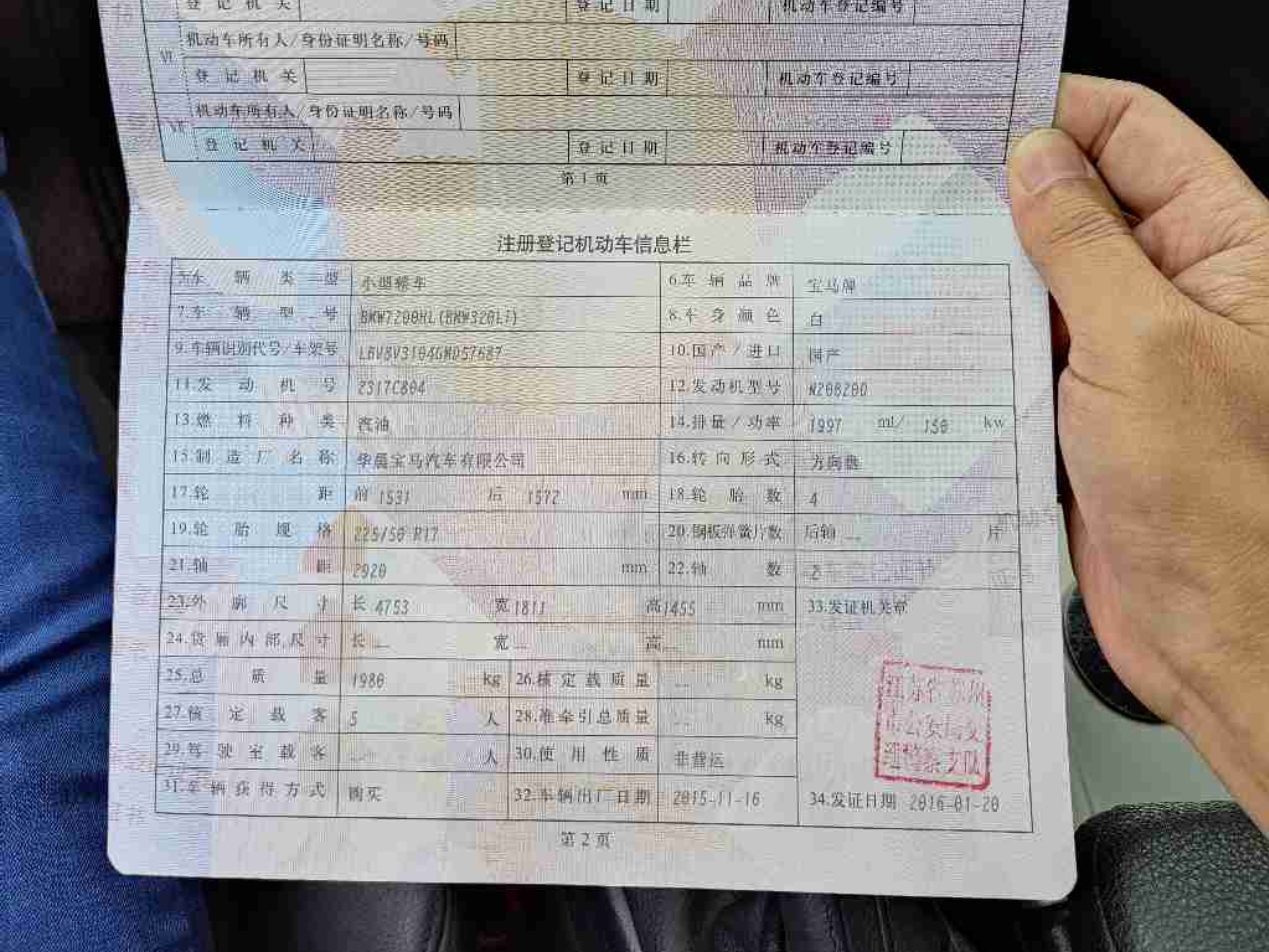 登记机关 登记日期 机动车登记编号
VI 机动车所有人/身份证明名称/号码
登记机关 登记日期 机动车登记编号
VII 机动车所有人/身份证明名称/号码
登记机关 登记日期 机动车登记编号
第1页
注册登记机动车信息栏
5.车辆类型 小型轿车 6.车辆品牌 宝马牌
7.车辆型号 BMW7200HL(BMW320Li) 8.车身颜色 白
9.车辆识别代号/车架号 10.国产/进口 国产
11.发动机号 2317C804 12.发动机型号 N20B20D
13.燃料种类 汽油 14.排量/功率 1997 ml/ 150 kw
15.制造厂名称 华晨宝马汽车有限公司 16.转向形式 方向盘
17.轮距 前 1531 后 1572 mm 18.轮胎数 4
19.轮胎规格 225/50 R17 20.钢板弹簧片数 后轴 -- 片
21.轴距 2920 mm 22.轴数 2
23.外廓尺寸 长 4753 宽 1811 高 1455 mm 33.发证机关章
24.货厢内部尺寸 长 -- 宽 -- 高 -- mm
25.总质量 1980 kg 26.核定载质量 -- kg
江苏省苏州
27.核定载客 5 人 28.准牵引总质量 -- kg
市公安局交
29.驾驶室载客 -- 人 30.使用性质 非营运
通警察支队
31.车辆获得方式 购买 32.车辆出厂日期 2015-11-16 34.发证日期 2016-01-20
第2页